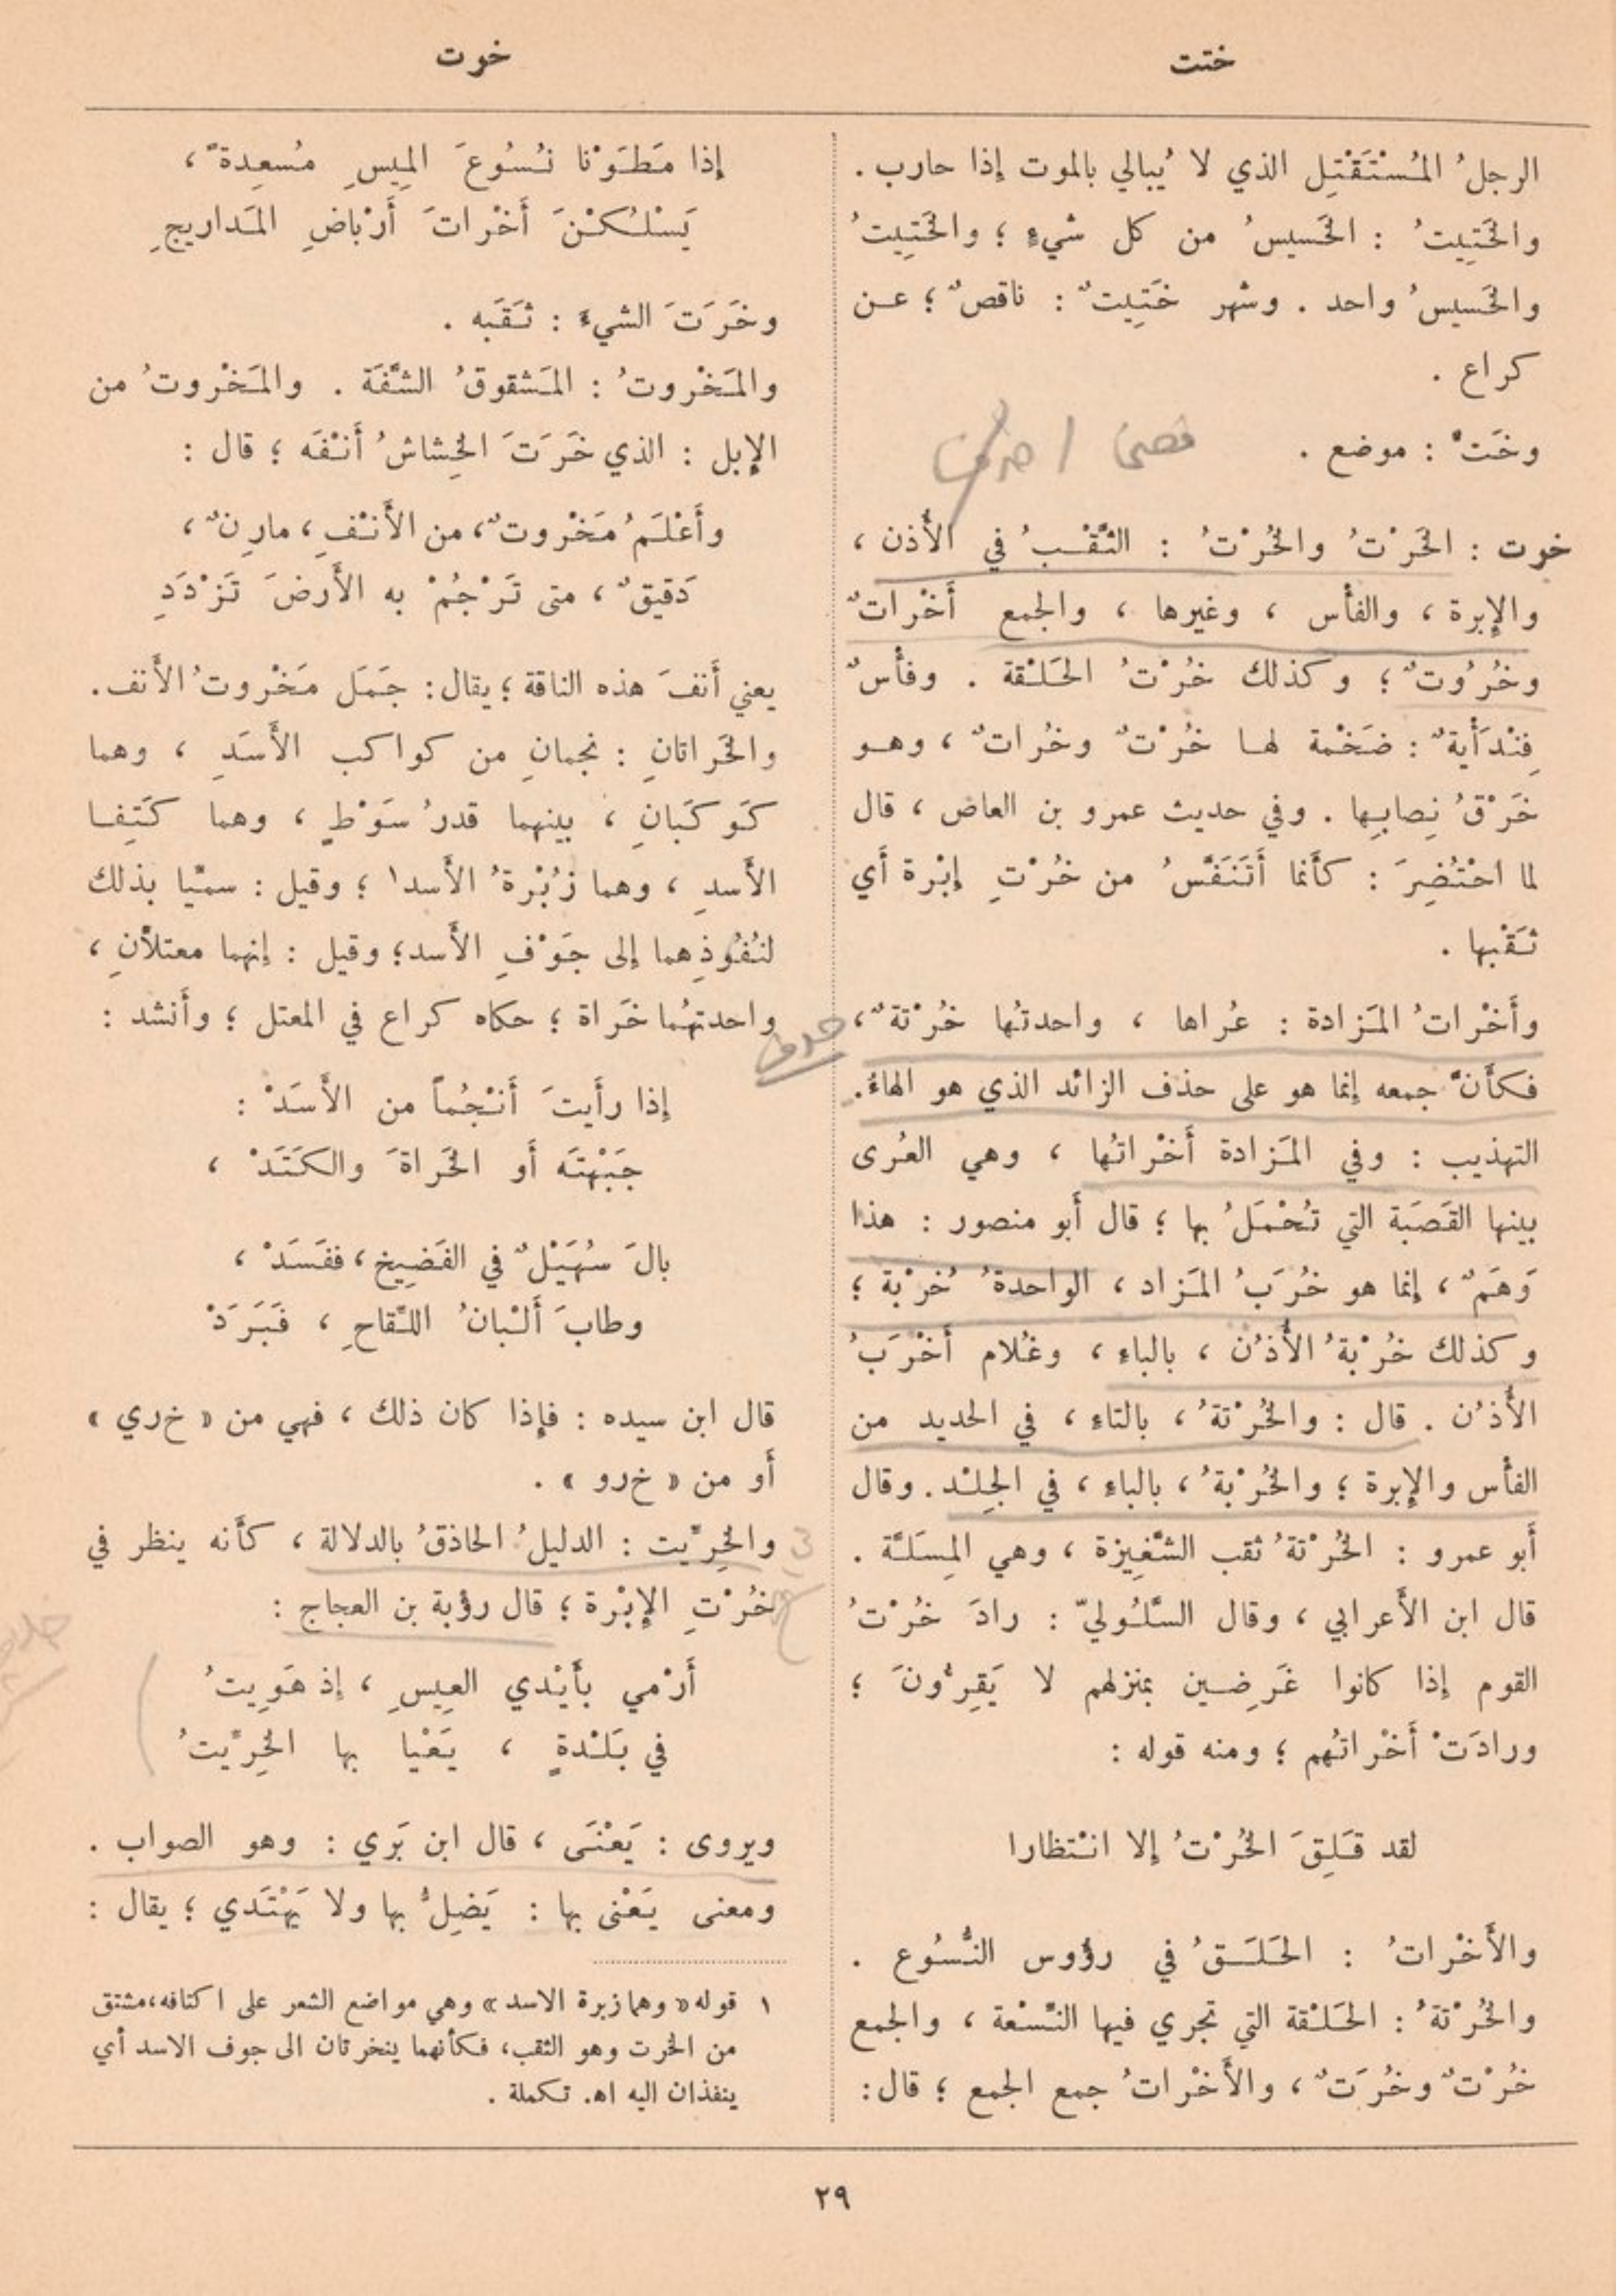 ختت
خوت
الرجلُ المُسْتَقْتِل الذي لا يُبالي بالموت إذا حارب .
والخَتِيتُ : الخَسيسُ من كل شيءٍ ؛ والخَتِيتُ
والخَسيسُ واحد . وشهر خَتِيتٌ : ناقصٌ ؛ عن
كراع .
وخَتٌّ : موضع .
خوت : الخَرْتُ والخُرْتُ : الثَّقْبُ في الأُذن ،
والإِبرة ، والفأْس ، وغيرها ، والجمع أَخْراتٌ
وخُرُوتٌ ؛ وكذلك خُرْتُ الحَلْقة . وفأْسٌ
فِنْدَأْيةٌ : ضَخْمة لها خُرْتٌ وخُراتٌ ، وهو
خَرْقُ نِصابِها . وفي حديث عمرو بن العاص ، قال
لما احْتُضِرَ : كأَنما أَتَنَفَّسُ من خُرْتِ إِبْرة أَي
ثَقْبها .
وأَخْراتُ المَزادة : عُراها ، واحدتُها خُرْتةٌ ،
فكأَنَّ جمعه إنما هو على حذف الزائد الذي هو الهاءُ.
التهذيب : وفي المَزادة أَخْراتُها ، وهي العُرى
بينها القَصَبة التي تُحْمَلُ بها ؛ قال أَبو منصور : هذا
وَهَمٌ ، إنما هو خُرَبُ المَزاد ، الواحدةُ خُرْبة ؛
وكذلك خُرْبةُ الأُذُن ، بالباءِ ، وغُلام أَخْرَبُ
الأُذُن . قال : والخُرْتةُ ، بالتاءِ ، في الحديد من
الفأْس والإِبرة ؛ والخُرْبةُ ، بالباءِ ، في الجِلْد. وقال
أَبو عمرو : الخُرْتةُ ثقب الشَّغِيزة ، وهي المِسَلَّة .
قال ابن الأَعرابي ، وقال السَّلُوليّ : رادَ خُرْتُ
القوم إذا كانوا غَرِضين بمنزلهم لا يَقِرُّونَ ؛
ورادَتْ أَخْراتُهم ؛ ومنه قوله :
لقد قَلِقَ الخُرْتُ إلا انْتظارا
والأَخْراتُ : الحَلَقُ في رؤوس النُّسُوع .
والخُرْتةُ : الحَلْقة التي تجري فيها النِّسْعة ، والجمع
خُرْتٌ وخُرَتٌ ، والأَخْراتُ جمع الجمع ؛ قال:
إذا مَطَوْنا نُسُوعَ المِيسِ مُسعِدةً ،
يَسْلُكْنَ أَخْراتَ أَرْباضِ المَداريجِ
وخَرَتَ الشيءَ : ثَقَبه .
والمَخْروتُ : المَشقوقُ الشَّفَة . والمَخْروتُ من
الإِبل : الذي خَرَتَ الخِشاشُ أَنْفَه ؛ قال :
وأَعْلَمُ مَخْروتٌ، من الأَنْفِ ، مارِنٌ ،
دَقيقٌ ، متى تَرْجُمْ به الأَرضَ تَزْدَدِ
يعني أَنفَ هذه الناقة ؛ يقال: جَمَل مَخْروتُ الأَنف.
والخَراتانِ : نجمانِ من كواكب الأَسَدِ ، وهما
كَوكَبانِ ، بينهما قدرُ سَوْطٍ ، وهما كَتِفا
الأَسدِ ، وهما زُبْرةُ الأَسد١ ؛ وقيل : سمّيا بذلك
لنُفُوذِهما إلى جَوْفِ الأَسد؛ وقيل : إنهما معتلاَّنِ ،
واحدتهُما خَراة ؛ حكاه كراع في المعتل ؛ وأَنشد :
إذا رأَيتَ أَنْجُماً من الأَسَدْ :
جَبْهتَه أَو الخَراةَ والكَتَدْ ،
بالَ سُهَيْلٌ في الفَضِيخِ ، ففَسَدْ ،
وطابَ أَلْبانُ اللِّقاحِ ، فَبَرَدْ
قال ابن سيده : فإِذا كان ذلك ، فهي من « خ‌ري »
أَو من « خ‌رو » .
والخِرِّيت : الدليلُ الحاذقُ بالدلالة ، كأَنه ينظر في
خُرْتِ الإِبْرة ؛ قال رؤبة بن العجاج :
أَرْمي بأَيْدي العِيسِ ، إذ هَوِيتُ
في بَلْدةٍ ، يَعْيا بها الخِرِّيتُ
ويروى : يَعْنَى ، قال ابن بَري : وهو الصواب .
ومعنى يَعْنى بها : يَضِلُّ بها ولا يَهْتَدي ؛ يقال :
١ قوله « وهما زبرة الاسد » وهي مواضع الشعر على اكتافه، مشتق
من الخرت وهو الثقب، فكأنهما ينخرتان الى جوف الاسد أي
ينفذان اليه اه. تكملة .
٢٩